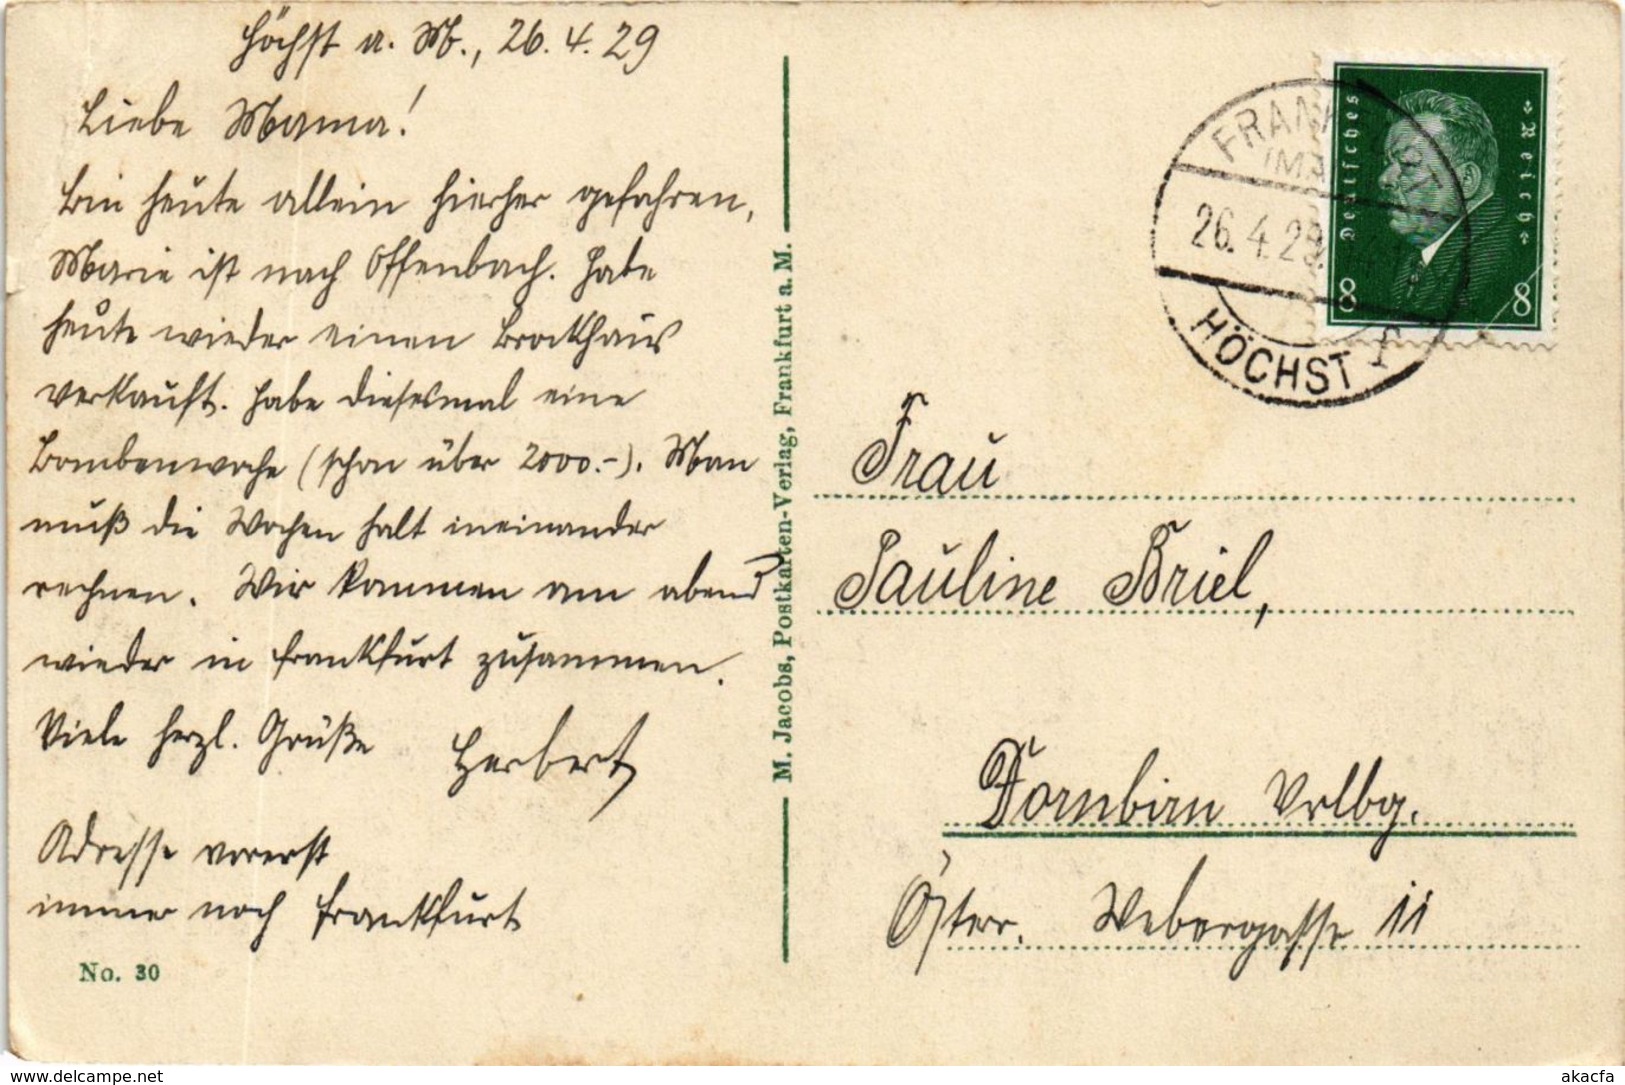 Höchst a. M., 26.4.29
Liebe Mama!
Bin heute allein hierher gefahren,
Marie ist nach Offenbach. Habe
heute wieder einen Brockhaus
verkauft. Habe diesesmal eine
Bombenwoche (schon über 2000.-). Man
muß die Wochen halt ineinander
rechnen. Wir kommen am abend
wieder in Frankfurt zusammen.
Viele herzl. Grüße Herbert
Adresse vorerst
immer noch Frankfurt
No. 30
M. Jacobs, Postkarten-Verlag, Frankfurt a. M.
Deutsches Reich
8 8
26.4.29
HÖCHST
Frau
Pauline Briel,
Dornbirn Vrlbg.
Österr. Webergasse 11
www.delcampe.net
akacfa